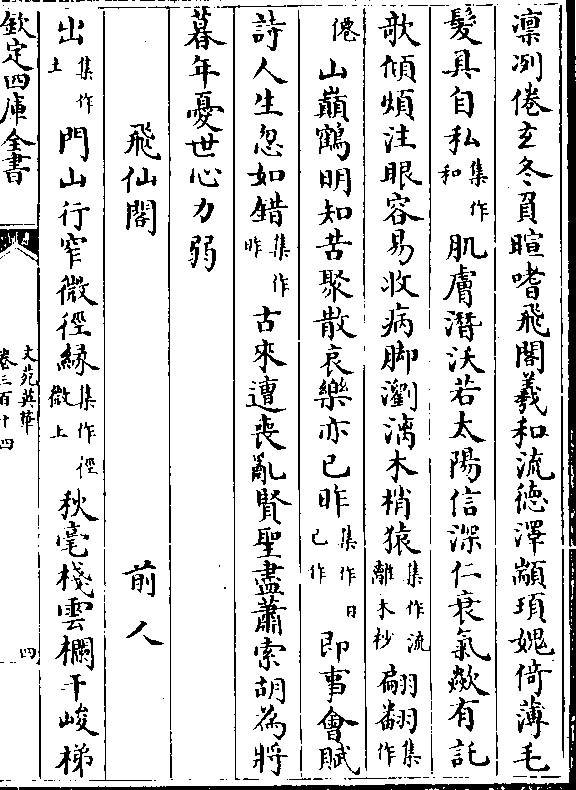 凛冽倦玄冬負暄嗜飛閣羲和流德澤顓頊媿倚薄毛
髮具自私集作和肌膚潛沃若太陽信深仁衰氣歘有託
欹傾煩注眼容易收病脚瀏漓木梢猿集作流離木杪翩翩集作
僊山巔鶴明知苦聚散哀樂亦已昨集作日已作即事會賦
詩人生忽如錯集作昨古來遭喪亂賢聖盡蕭索胡為將
暮年憂世心力弱
飛仙閣 前人
出集作土門山行窄微徑緣集作徑微上秋毫棧雲欄干峻梯
欽定四庫全書
文苑英華
卷三百十四
四